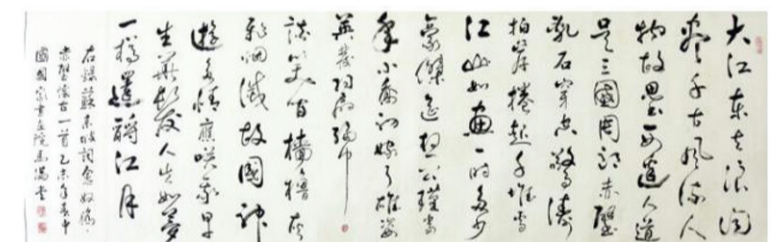 大江东去浪淘
尽千古风流人
物故垒西边人道
是三國周郎赤壁
乱石穿空惊涛
拍岸捲起千堆雪
江山如画一时多少
豪傑遥想公瑾当
年小乔初嫁了雄姿
英發羽扇纶巾
談笑间樯橹灰
飛烟滅故國神
遊多情應笑我早
生華髮人生如夢
一樽還酹江月
右録蘇东坡詞念奴嬌·
赤壁懷古一首乙未年春中
國國家書画院馬